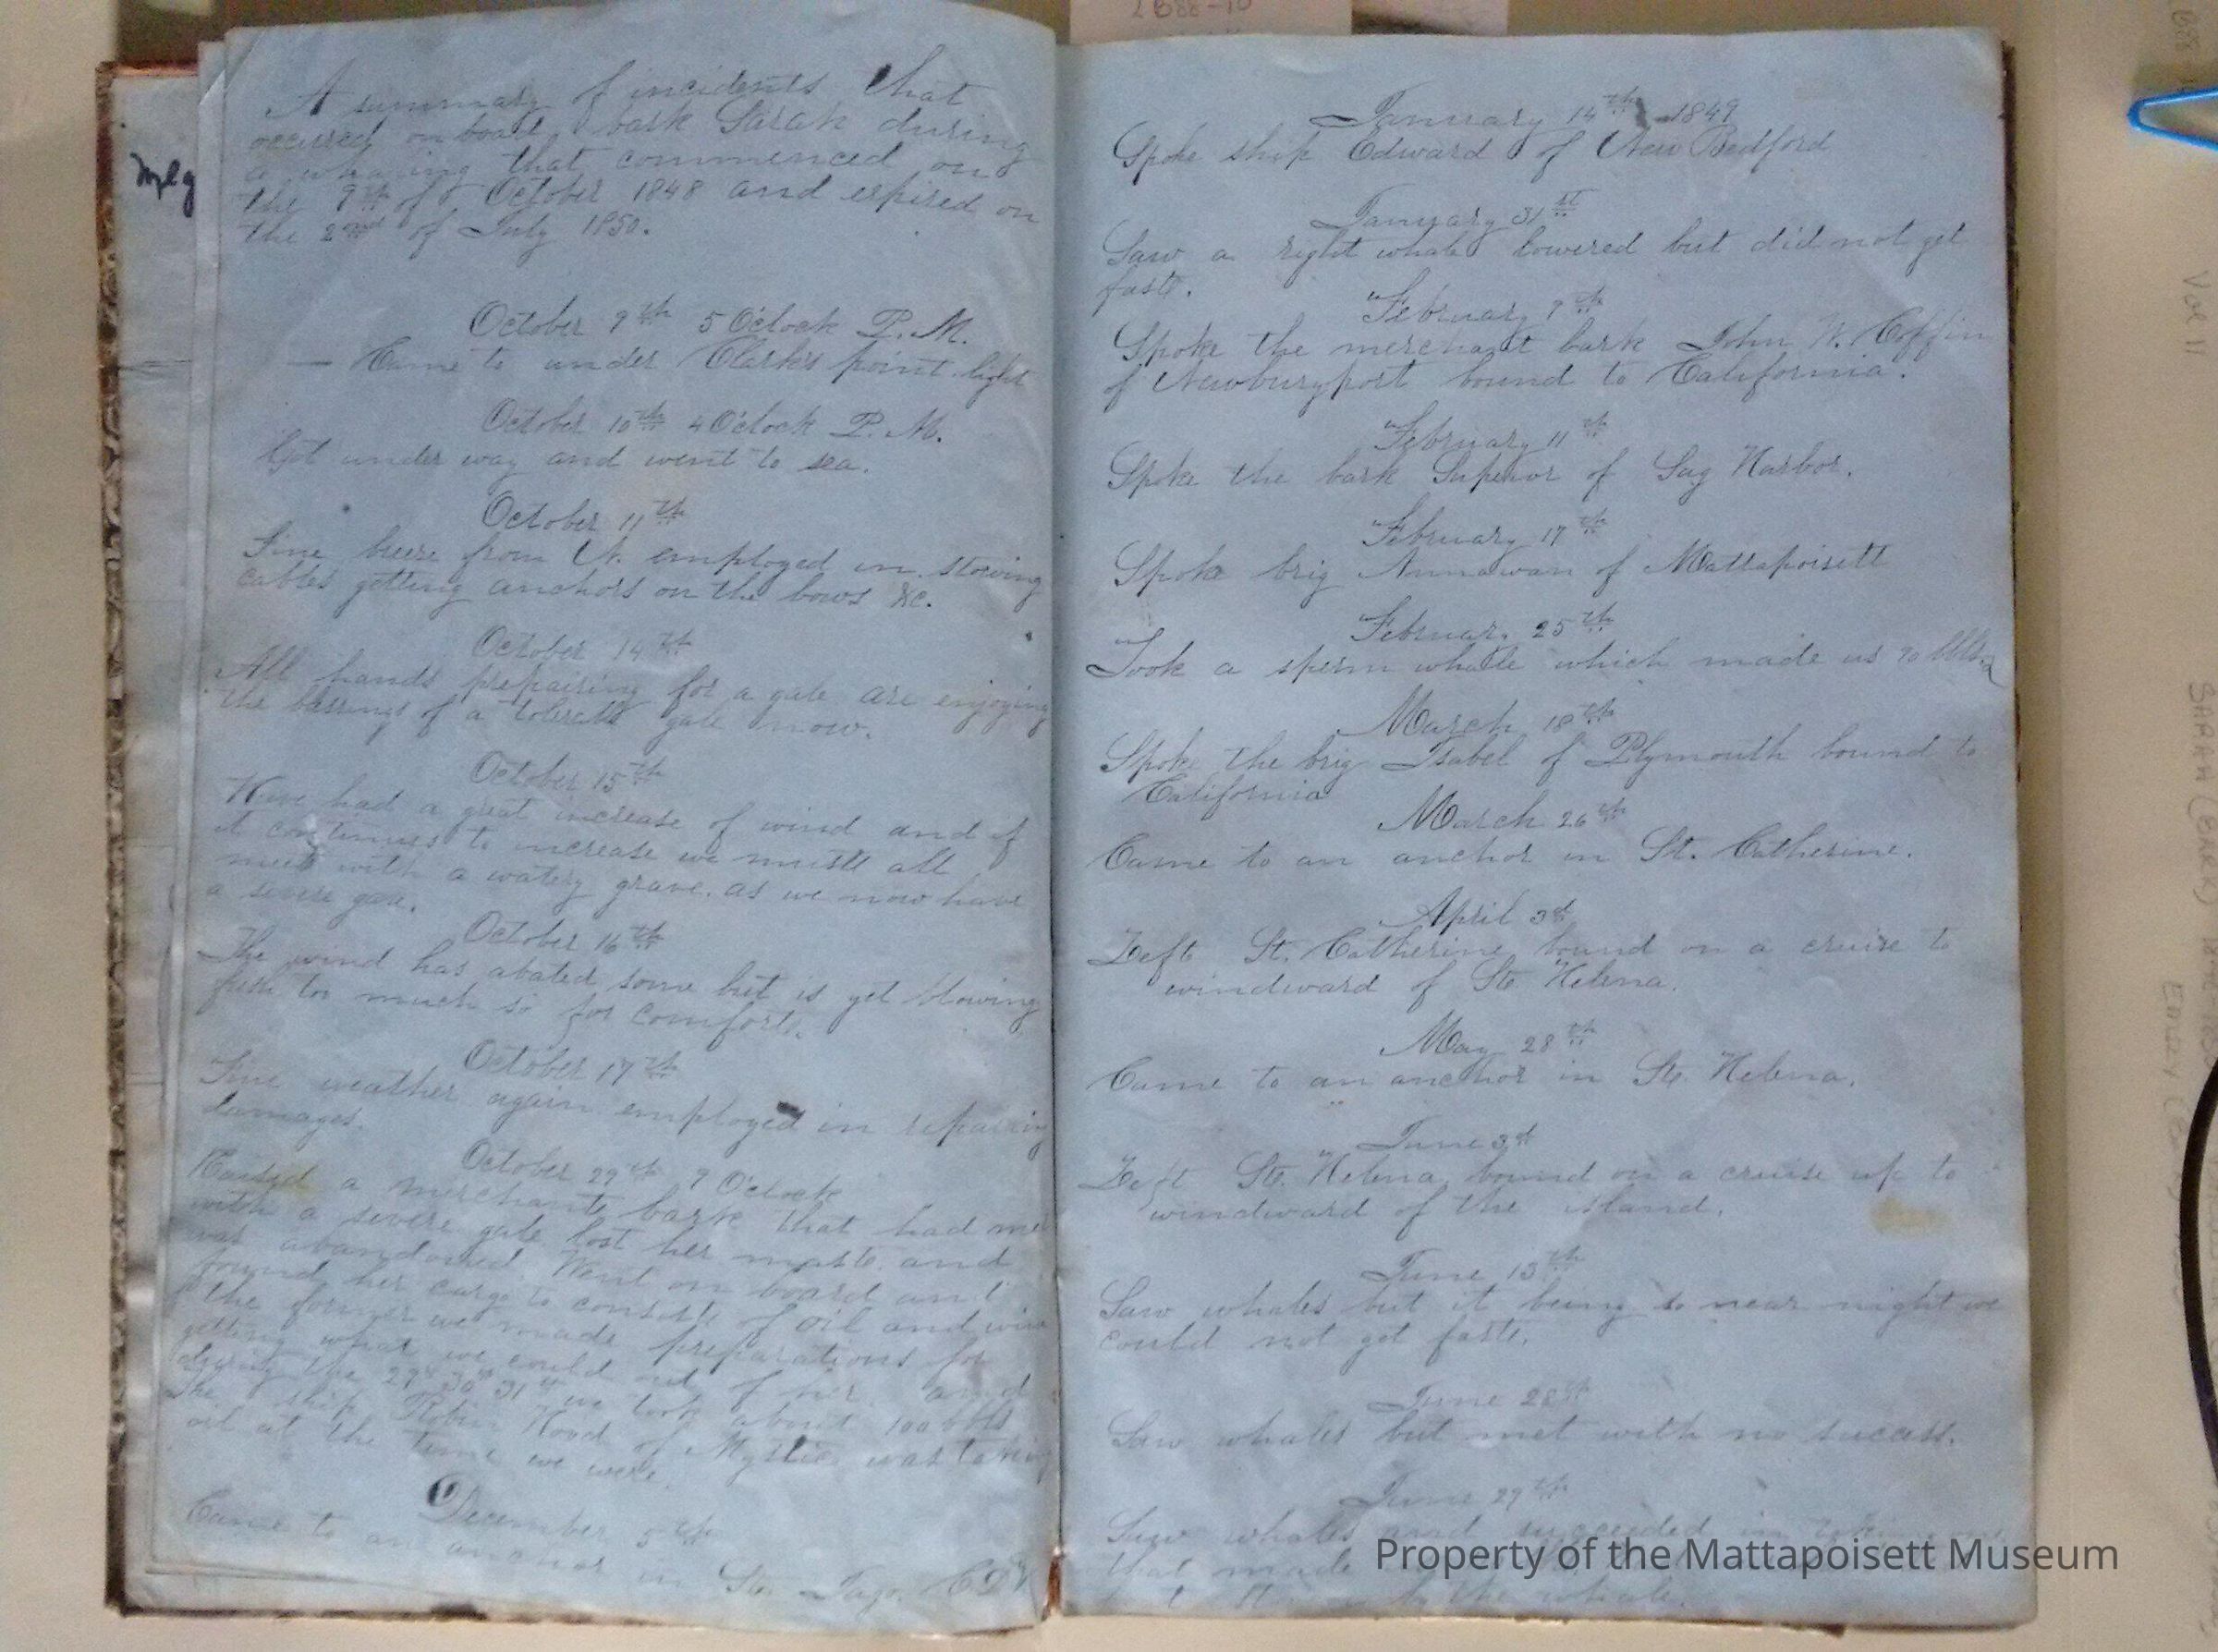 2B88-10
A summary of incidents that
occured on board bark Sarah during
a wharing that commenced on
the 9th of October 1848 and expired on
the 2nd of July 1850.
October 9th 5 O'clock P.M.
— Came to under Clark's point light
October 10th 4 O'clock P.M.
Got under way and went to sea.
October 11th
Fine breeze from N. employed in stowing
cables getting anchors on the bows &c.
October 14th
All hands prepairing for a gale are enjoying
the blessings of a tolerable gale now.
October 15th
Have had a great increase of wind and if
it continues to increase we muste all
meet with a watery grave. as we now have
a severe gale.
October 16th
The wind has abated some but is yet blowing
fresh too much so for comforte.
October 17th
Fine weather again employed in repairing
damages.
October 29th 9 O'clock
Raised a merchante bark that had met
with a severe gale lost her maste. and
was abandoned. Went on board and
found her cargo to consiste of oil and wine
the former we made preparations for
getting what we could out of her. and
during the 29th 30th 31st we took about 100 bbls
The ship Robin Hood of Mystic was taking
oil at the time we were.
December 5th
Came to an anchor in St. Jago. C.D.V
January 14th 1849
Spoke ship Edward of New Bedford
January 31st
Saw a right whale lowered but did not get
faste.
February 9th
Spoke the merchant bark John W. Coffin
of Newburyport bound to California.
February 11th
Spoke the bark Superior of Sag Harbor.
February 17th
Spoke brig Annawan of Mattapoisett
February 25th
Took a sperm whale which made us 70 bbls.
March 18th
Spoke the brig Isabel of Plymouth bound to
California
March 26th
Came to an anchor in St. Catherine.
April 3d
Left St. Catherine bound on a cruise to
windward of Ste Helena.
May 28th
Came to an anchor in Ste. Helena.
June 3d
Left Ste. Helena bound on a cruise up to
windward of the island.
June 13th
Saw whales but it being so near night we
could not get faste.
June 28th
Saw whales but met with no success.
June 29th
Saw whales and succeeded in taking one
that made
the whale.
Property of the Mattapoisett Museum
Vol 11